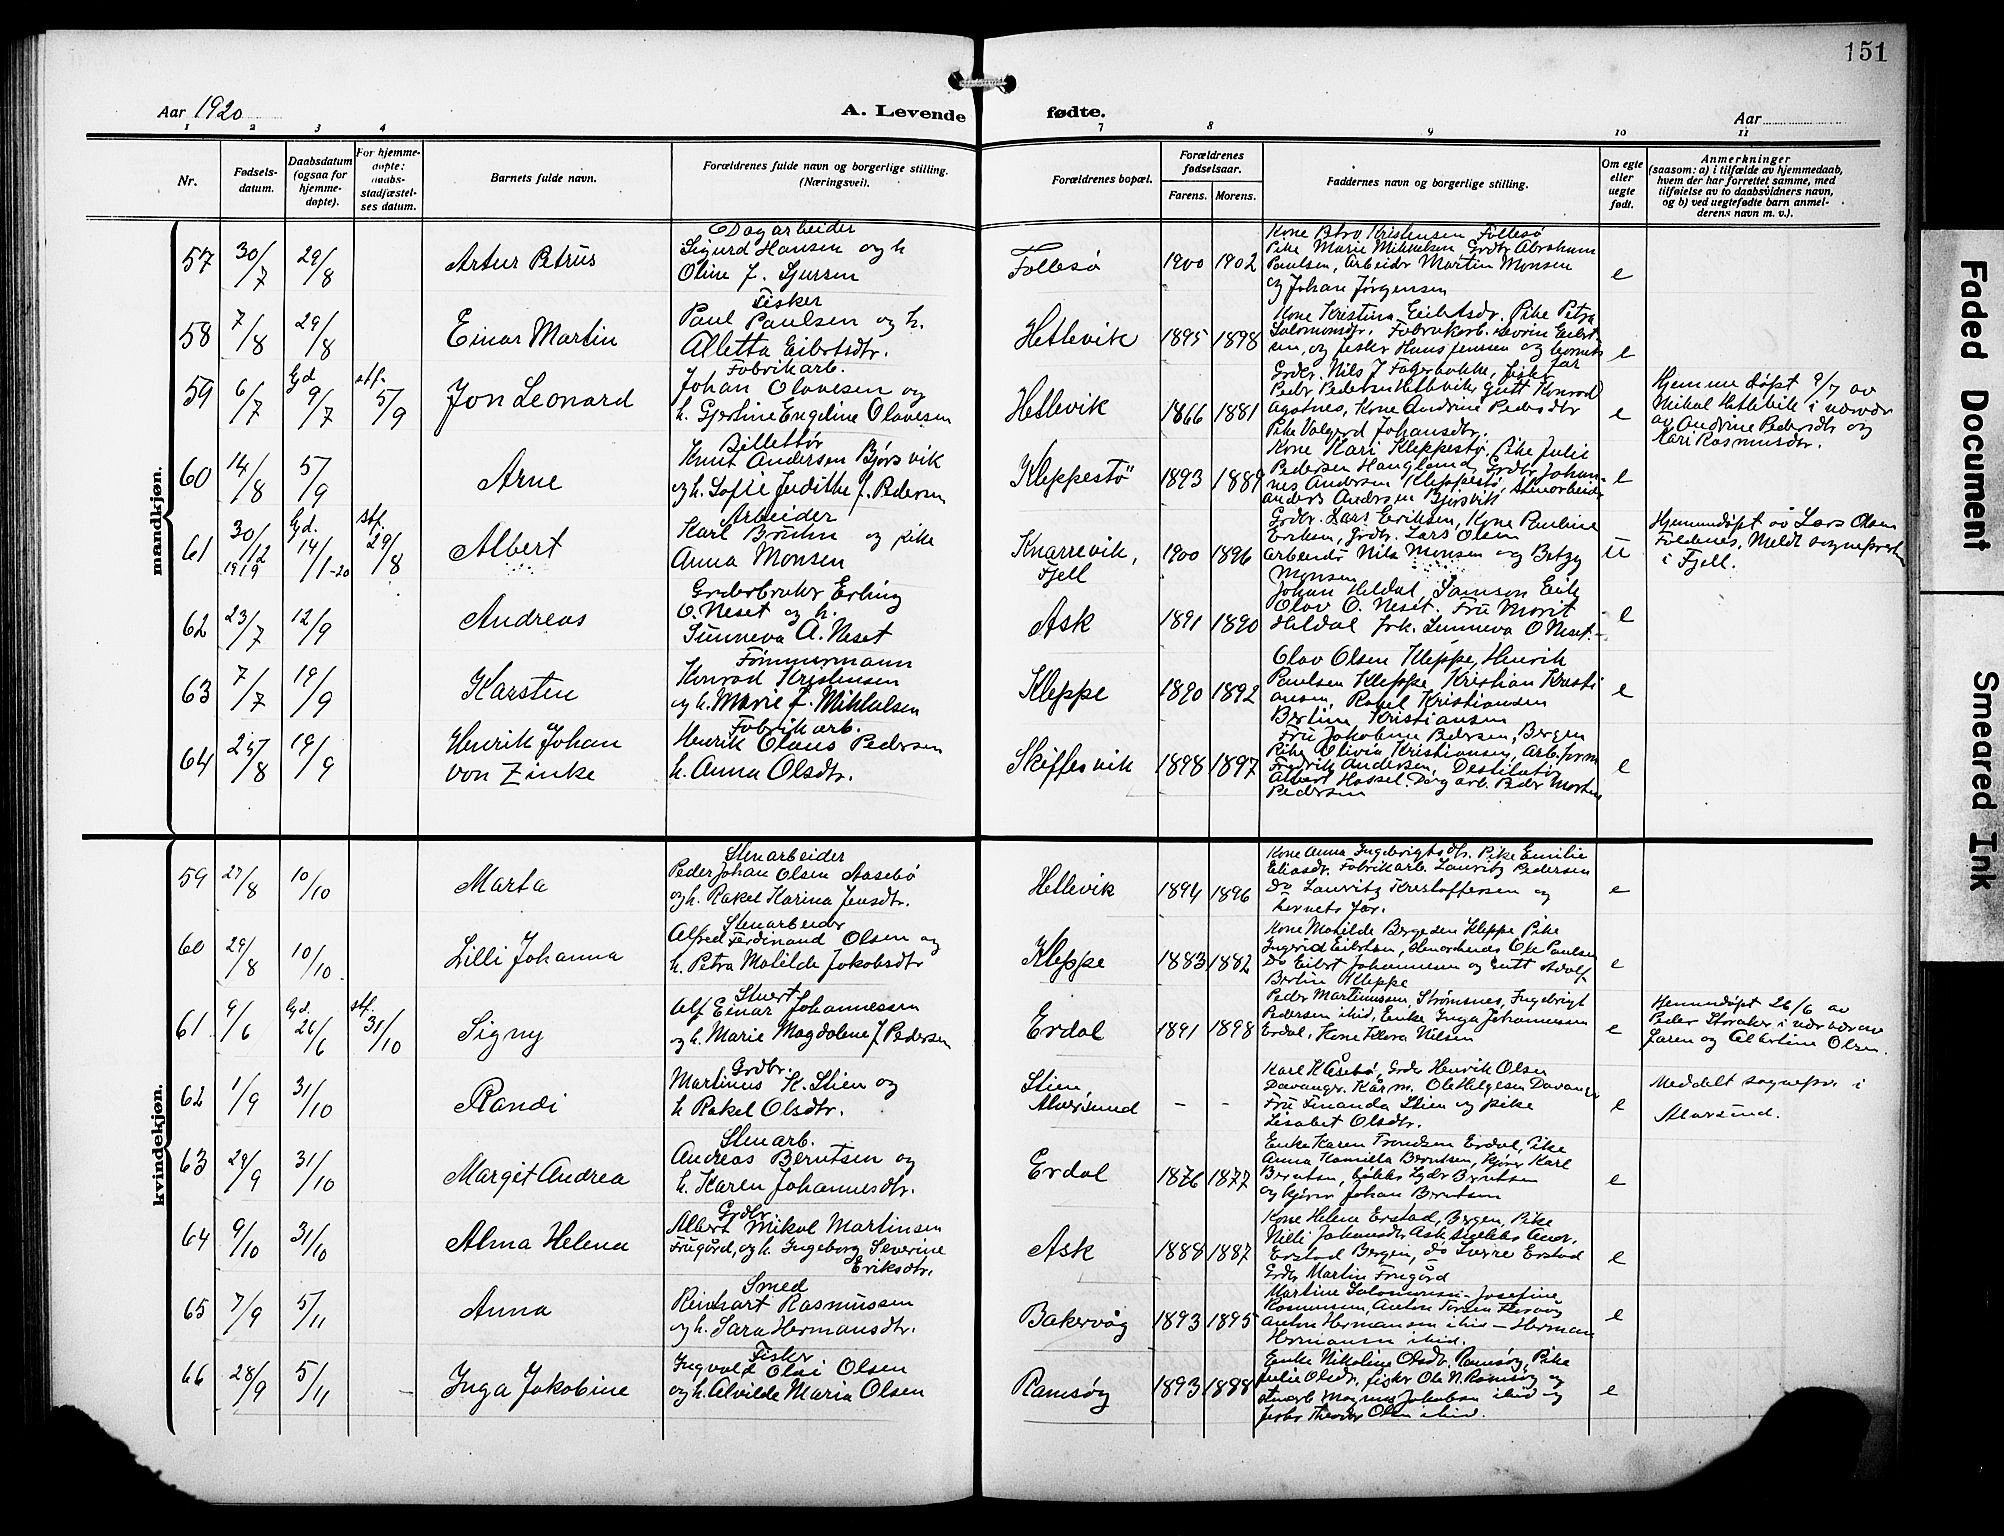 151
Aar 1920
A. Levende fødte.
Aar
1 2 3 4 7 8 9 10 11
Nr.
Fødsels-
datum.
Daabsdatum
(ogsaa for
hjemme-
døpte).
For hjemme-
døpte:
daabs-
stadfæstel-
ses datum.
Barnets fulde navn.
Forældrenes fulde navn og borgerlige stilling.
(Næringsvei).
Forældrenes bopæl.
Forældrenes
fødselsaar.
Farens. Morens.
Faddernes navn og borgerlige stilling.
Om egte
eller
uegte
født.
Anmerkninger
(saasom: a) i tilfælde av hjemmedaab,
hvem der har forrettet samme, med
tilføielse av to daabsvidners navn,
og b) ved uegtefødte barn anmel-
derens navn m. v.).
mandkjøn.
57 30/7 29/8 Artur Petrus
Dagarbeider
Sigurd Hansen og h
Oline J. Sjursen
Follesø 1900 1902
Pike Marie Mikkelsen Grdbr Abraham
Paulsen, Arbeider Martin Monsen
og Johan Jørgensen
e
58 7/8 29/8 Einar Martin
Fisker
Paul Paulsen og h.
Alletta Eilertsdtr.
Hetlevik 1895 1898
Kone Kristina Eilertsdr, Pike Petra
Salomonsdtr. Fabrikarb. Severin Eilert
sen, og fisker Hans Jenssen og barnets
far
e
59 6/7 Gd. 9/7 stf. 5/9 Jon Leonard
Fabrikarb.
Johan Olavesen og
h. Gjertine Engeline Olavesen
Hetlevik 1866 1881
Peder Pedersen Hetlevik, Gutt Konrad
Agotnes, Kone Andrine Pedersdtr
Pike Valgerd Johansdtr.
e
Hjemmedøpt 9/7 av
Mikal Hetlevik i nærvær
av Andrine Pedersdtr og
Kari Rasmusdtr.
60 14/8 5/9 Arne
Billettør
Knut Andersen Bjørsvik
og h. Sofie Judithe f. Pedersen
Kleppestö 1893 1889
Kone Kari Kleppestø, Pike Julie
Pedersen Haugland, Grdbr Johan-
nes Andersen Kleppestø, Stenarbeider
Anders Andersen Bjørsvik
e
61 30/12 1919 Gd. 14/1-20 stf. 29/8 Albert
Arbeider
Karl Bruhn og pike
Anna Monsen
Knarrevik,
Fjell
1900 1896
Grdbr. Lars Eriksen, Kone Pauline
Eriksen, Grdbr. Lars Olsen
arbeider Nils Monsen og Betzy
Monsen
u
Hjemmedøpt av Lars Olsen
Foldnes, Meldt sogneprest
i Fjell.
62 23/7 12/9 Andreas
Grdebruker Erling
O. Neset og h.
Sunneva A. Neset
Ask 1891 1890
Johan Hildal, Samson Eik
Olav O. Neset. Fru Marit
Hildal frk. Sunneva O Neset.
e
63 7/7 19/9 Karsten
Tømmermann
Konrad Kristensen
og h. Marie f. Mikkelsen
Kleppe 1890 1892
Olav Olsen Kleppe, Henrik
Paulsen Kleppe, Kristian Kristi
ansen, Rakel Kristiansen
Bertine Kristiansen
e
64 25/8 19/9 Henrik Johan
von Zinke
Fabrikarb.
Henrik Olaus Pedersen
h. Anna Olsdtr.
Skiftesvik 1898 1897
Fru Jakobine Pedersen, Bergen
Pike Olivia Kristiansen, Arb. form
Fredrik Andersen, Destilatør
Albert Hassel. Dagarb. Peder Morten
Pedersen
e
kvindekjøn.
59 27/8 10/10 Marta
Stenarbeider
Peder Johan Olsen Aasebø
og h. Rakel Karina Jensdtr.
Hetlevik 1894 1896
Kone Anna Ingebrigtsdtr. Pike Emilie
Eliasdr. Fabrikarb. Lauritz Pedersen
Do Lauritz Kristoffersen og
barnets far.
e
60 29/8 10/10 Lilli Johanna
Stenarbeider
Alfred Ferdinand Olsen og
h. Petra Matilde Jakobsdtr
Kleppe 1883 1882
Kone Matilde Bergesen Kleppe Pike
Ingerid Eilertsen, Stenarbeider Ole Paulsen
Do Eilert Johannesen og Gutt Adolf
Bertin Kleppe
e
61 9/6 Gd. 26/6 stf. 31/10 Signy
Stuert
Alf Einar Johannessen
og h. Marie Magdalene f Pedersen
Erdal 1891 1898
Peder Martinussen, Strømsnes, Ingebrigt
Pedersen ibid, Enke Inga Johannessen
Erdal, Kone Klara Nilsen
e
Hjemmedøpt 26/6 av
Peder Storaker i nærvær av
faren og Albertine Olsen.
62 1/9 31/10 Randi
Grdbr.
Martinus K. Stien og
h Rakel Olsdtr.
Stien
Alversund
- -
Karl K Åsebø, Grdr Henrik Olsen
Davanger. Kårm. Ole Helgesen Davanger
Fru Finanda Stien og pike
Lisabet Olsdtr.
e
Meddelt sognepr. i
Alversund.
63 29/9 31/10 Margit Andrea
Stenarb.
Andreas Berntsen og
h. Karen Johannesdtr.
Erdal 1876 1877
Enke Karen Trondsen Erdal, Pike
Anna Kamilla Berntsen, Kjører Karl
Berntsen, Lyder Berntsen
og kjører Johan Berntsen
e
64 9/10 31/10 Alma Helena
Grdbr.
Albert Mikal Martinsen
Frugård, og h. Ingeborg Severine
Eriksdtr.
Ask 1888 1887
Kone Helene Erstad, Bergen, Pike
Nilli Johansdtr Ask,
Erstad Bergen, do Sverre Erstad
Grdbr Martin Frugård
e
65 7/9 5/11 Anna
Smed
Reinhart Rasmussen
og h. Sara Hermansdtr.
Bakervåg 1893 1895
Martine Salomonsen - Josefine
Rasmussen, Anton Torsen Florvåg
Anton Hermansen ibid - Herman
Hermansen ibid.
e
66 28/9 5/11 Inga Jakobine
Fisker
Ingvald Olai Olsen
og h. Alvilde Maria Olsen
Ramsøy 1893 1898
Enke Nikoline Olsdtr. Ramsøy, Pike
Julie Olsdtr, fisker Ole N. Ramsøy og
stenarb. Magnus Jakobsen ibid og
fisker Theodor Olsen ibid.
e
Faded Document
Smeared Ink